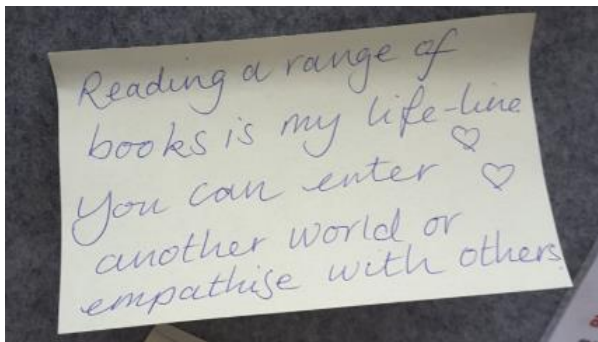 Reading a range of
books is my life-line
You can enter ♡ ♡
another world or
empathise with others.